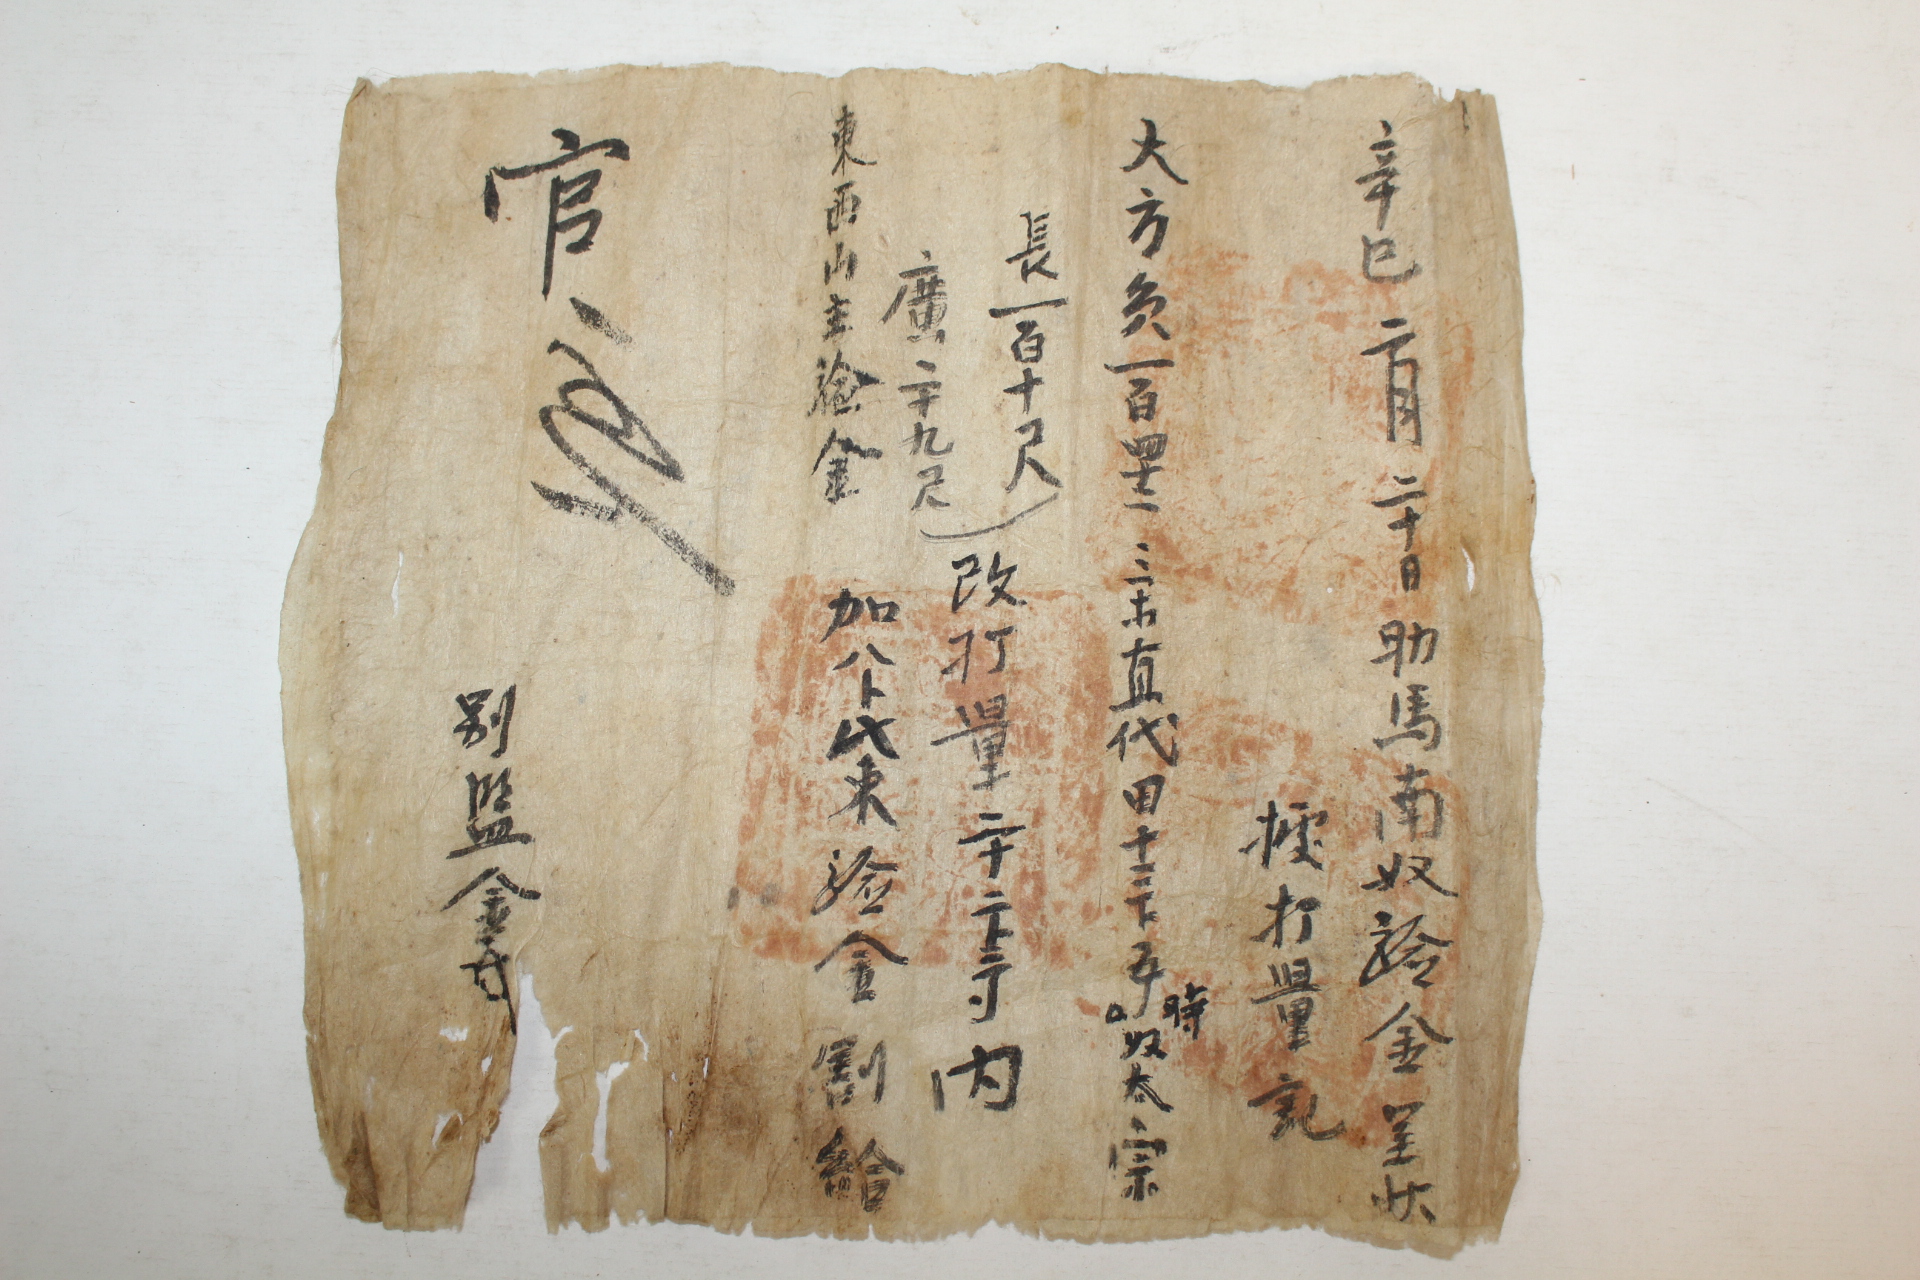 辛巳二月二十日助馬南奴驗金呈狀
據打量記
大方員一百四十二 三束直代田十三卜五 時奴太宗
長一百十尺
廣二十九尺
改打量二十二卜 內
東西山主驗金
加八卜代東驗金割給
官
別監金